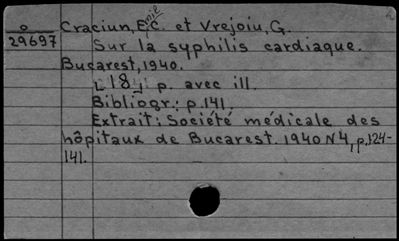 o Craciun, Emile C. et Vrejoiu, G.
29697 Sur la syphilis cardiaque.
Bucarest, 1940.
[18] p. avec ill.
Bibliogr.: p. 141.
Extrait: Société médicale des
hôpitaux de Bucarest. 1940 N 4, p. 124-
141.